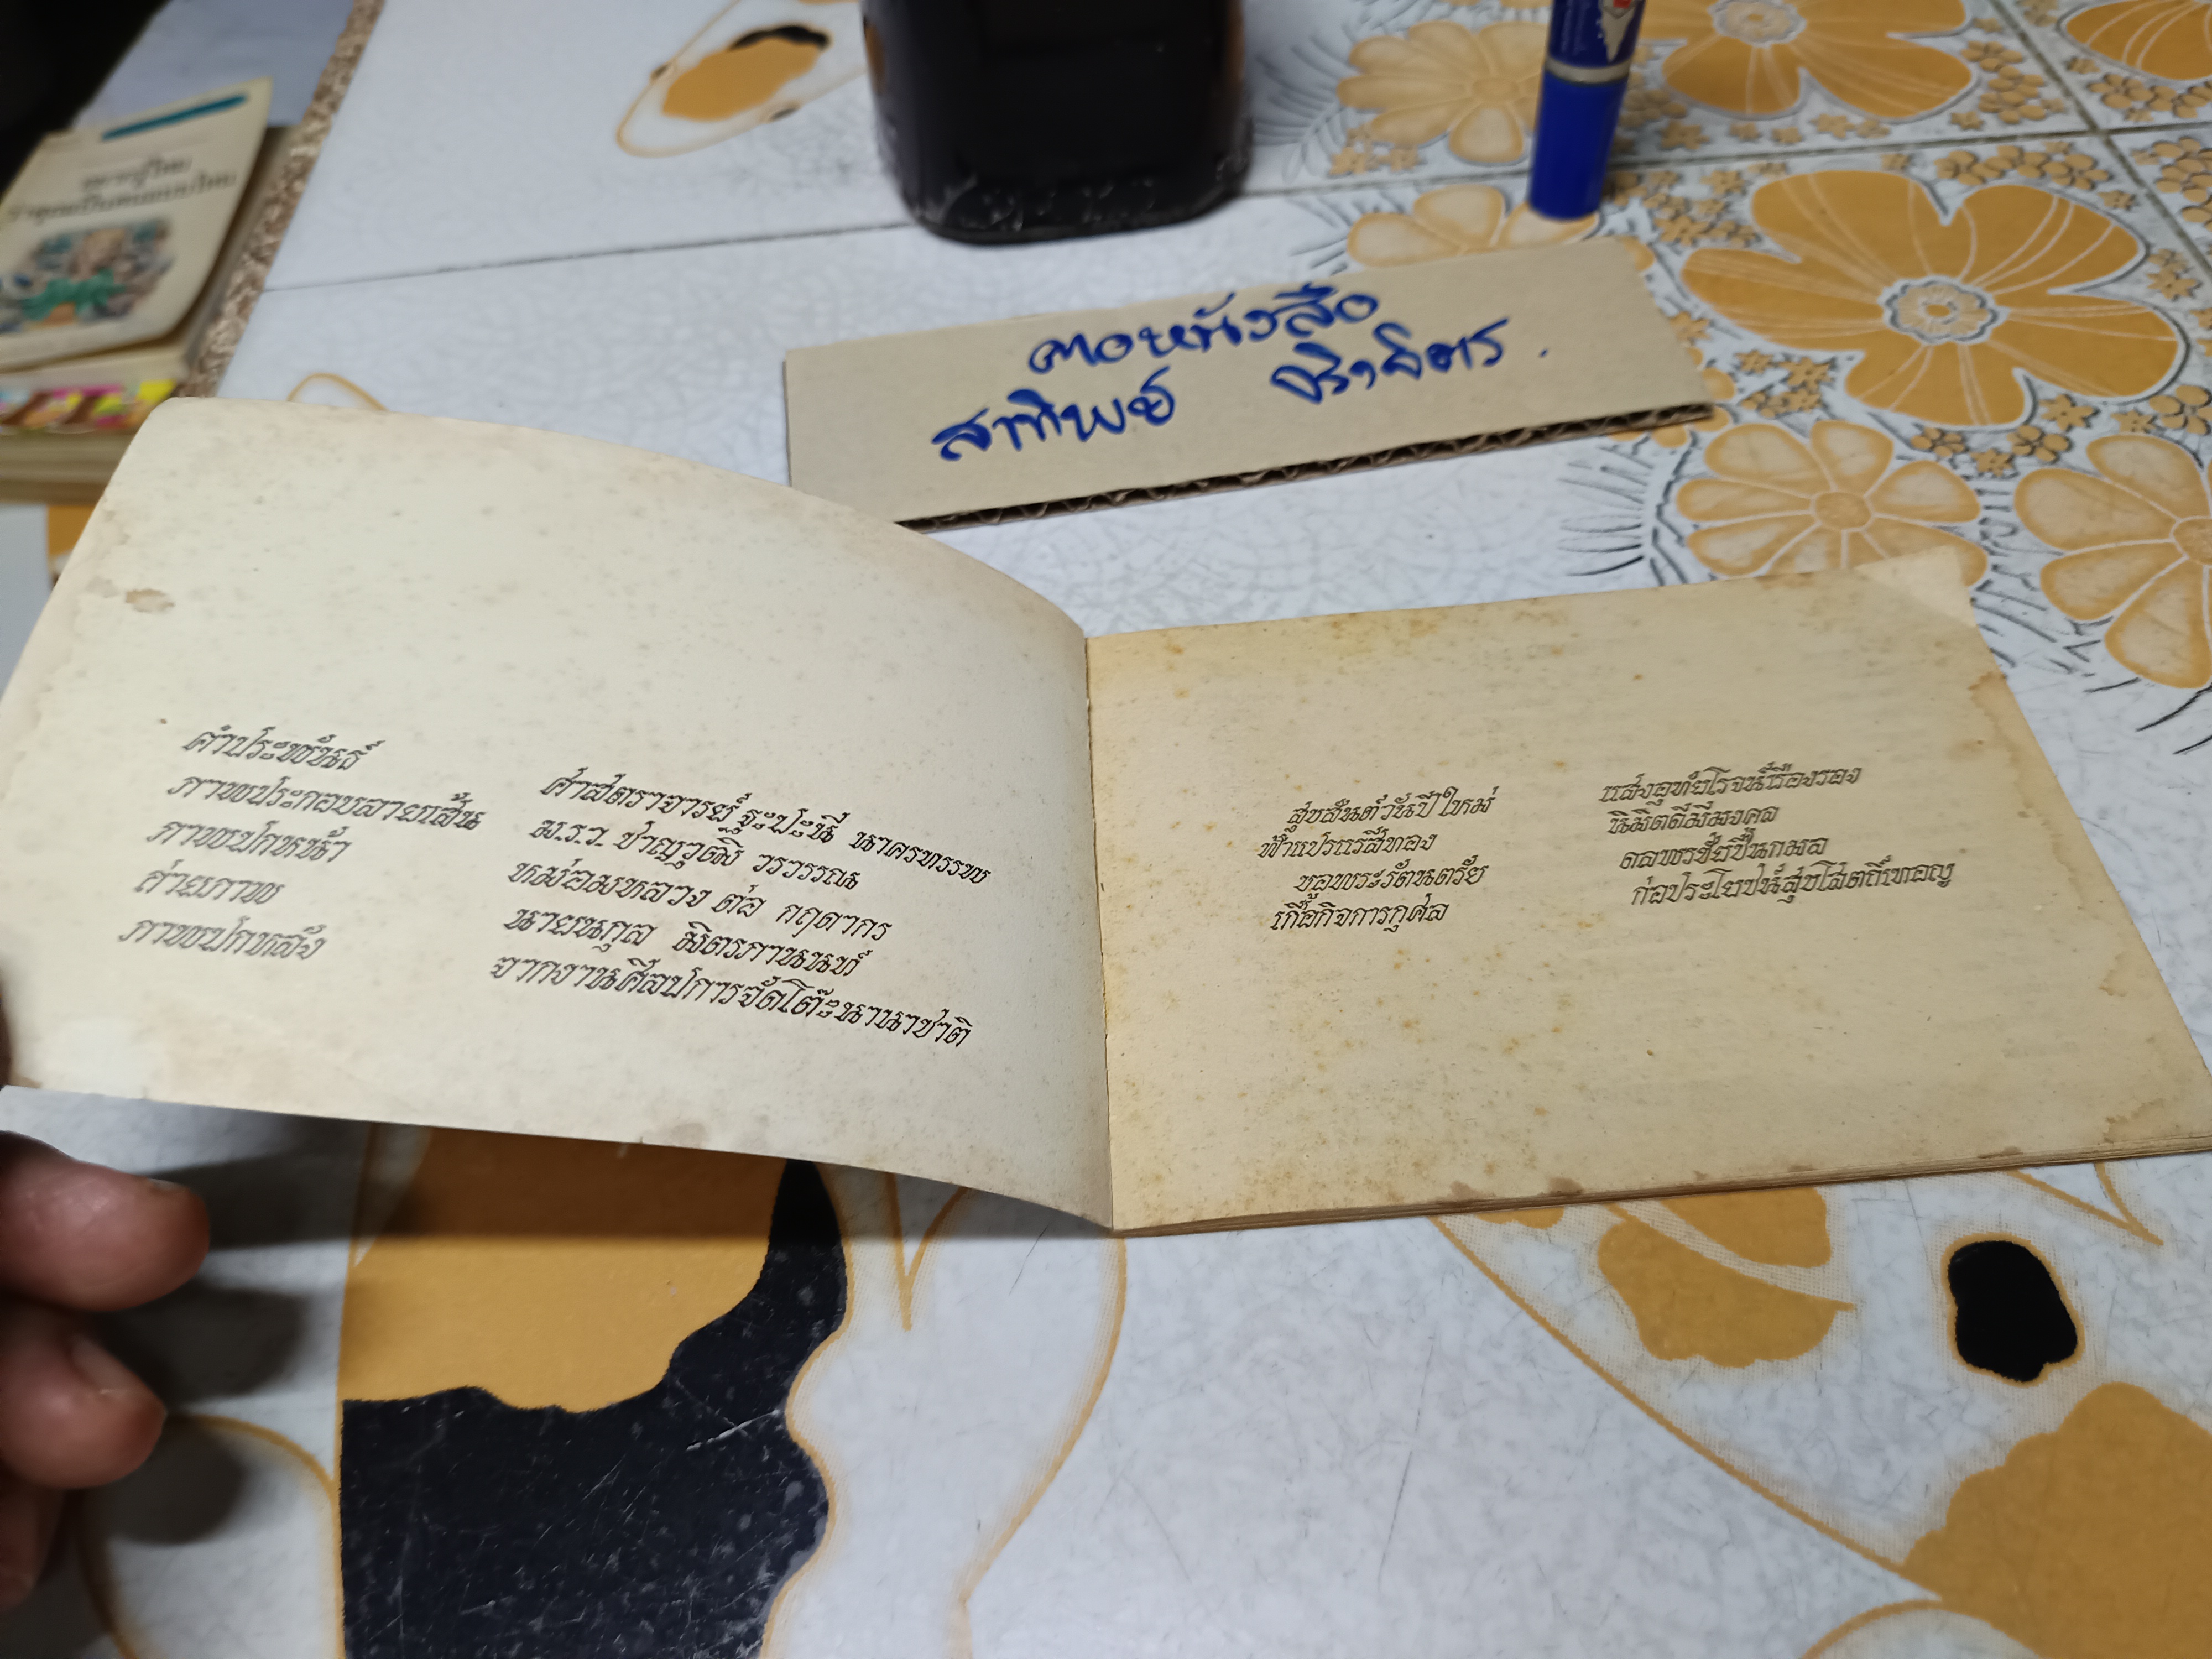 คอหนังสือ
สาทิพย์
คำประพันธ์ ศาสตราจารย์ ฐะปะนีย์ นาครทรรพ
ภาพประกอบลายเส้น ม.ร.ว. ชาญวุฒิ วรวรรณ
ภาพปกหน้า หม่อมหลวง ต่อ กฤดากร
ถ่ายภาพ นายนกุล มิตรภานนท์
ภาพปกหลัง จากงานศิลปการจัดโต๊ะนานาชาติ
สุขสันต์วันปีใหม่ แสงอุทัยโรจน์เรืองรอง
ฟ้าแปรแรสีทอง นิมิตดีมีมงคล
ขอพระรัตนตรัย ดลพรชัยปิ่นกมล
เกื้อกิจการกุศล ก่อประโยชน์สุขโสตถิ์เทอญ